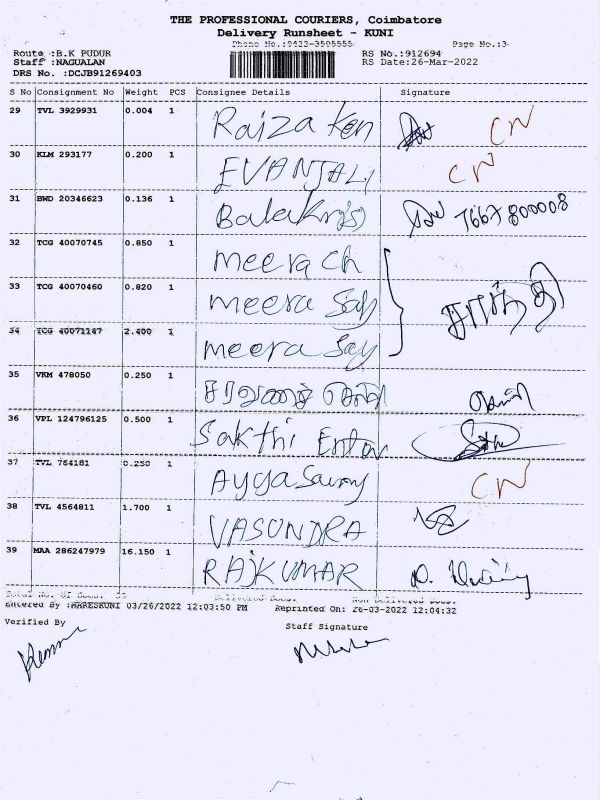 THE PROFESSIONAL COURIERS, Coimbatore
Delivery Runsheet - KUNI
Phone No.:0422-3505555 Page No.:3
Route :B.K PUDUR RS No.:912694
Staff :NAGUALAN RS Date:26-Mar-2022
DRS No. :DCJB91269403
S No Consignment No Weight PCS Consignee Details Signature
29 TVL 3929931 0.004 1 Raiza Ken CN
30 KLM 293177 0.200 1 EVANJALI CN
31 BWD 20346623 0.136 1 7667800008
32 TCG 40070745 0.850 1 meera ch
33 TCG 40070460 0.820 1 meera Say சாந்தி
34 TCG 40071147 2.400 1 meera Say
35 VKM 478050 0.250 1
36 VPL 124796125 0.500 1 Sakthi Enter
37 TVL 754181 0.250 1 Ayyasamy CN
38 TVL 4564811 1.700 1 VASONDRA
39 MAA 286247979 16.150 1 RAJKUMAR
Total No. Of Docs. Delivered Docs. Non Delivered Docs.
Entered By :MARESKUNI 03/26/2022 12:03:50 PM Reprinted On: 26-03-2022 12:04:32
Verified By Staff Signature